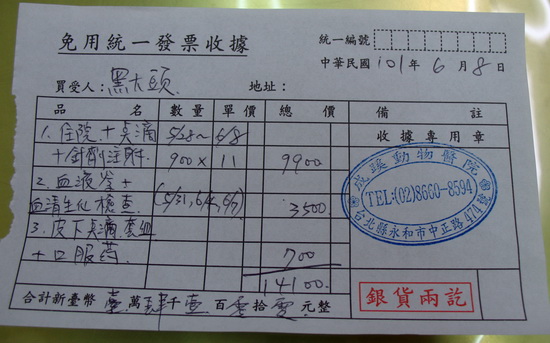 免用統一發票收據
統一編號
中華民國 101 年 6 月 8 日
買受人：黑大頭 地址：
品名 數量 單價 總價 備註
收據專用章
1. 住院+点滴 5/28~ 6/8
+針劑注射. 900 × 11 9900
2. 血液
血清生化檢查 (5/31, 6/4, 6/7) 3500
3. 皮下点滴
+口服药. 700
14100.
動物醫院
TEL:(02)8660-8594
台北縣永和市中正路474號
銀貨兩訖
合計新臺幣 壹 萬 肆 千 壹 百 零 拾 零 元整